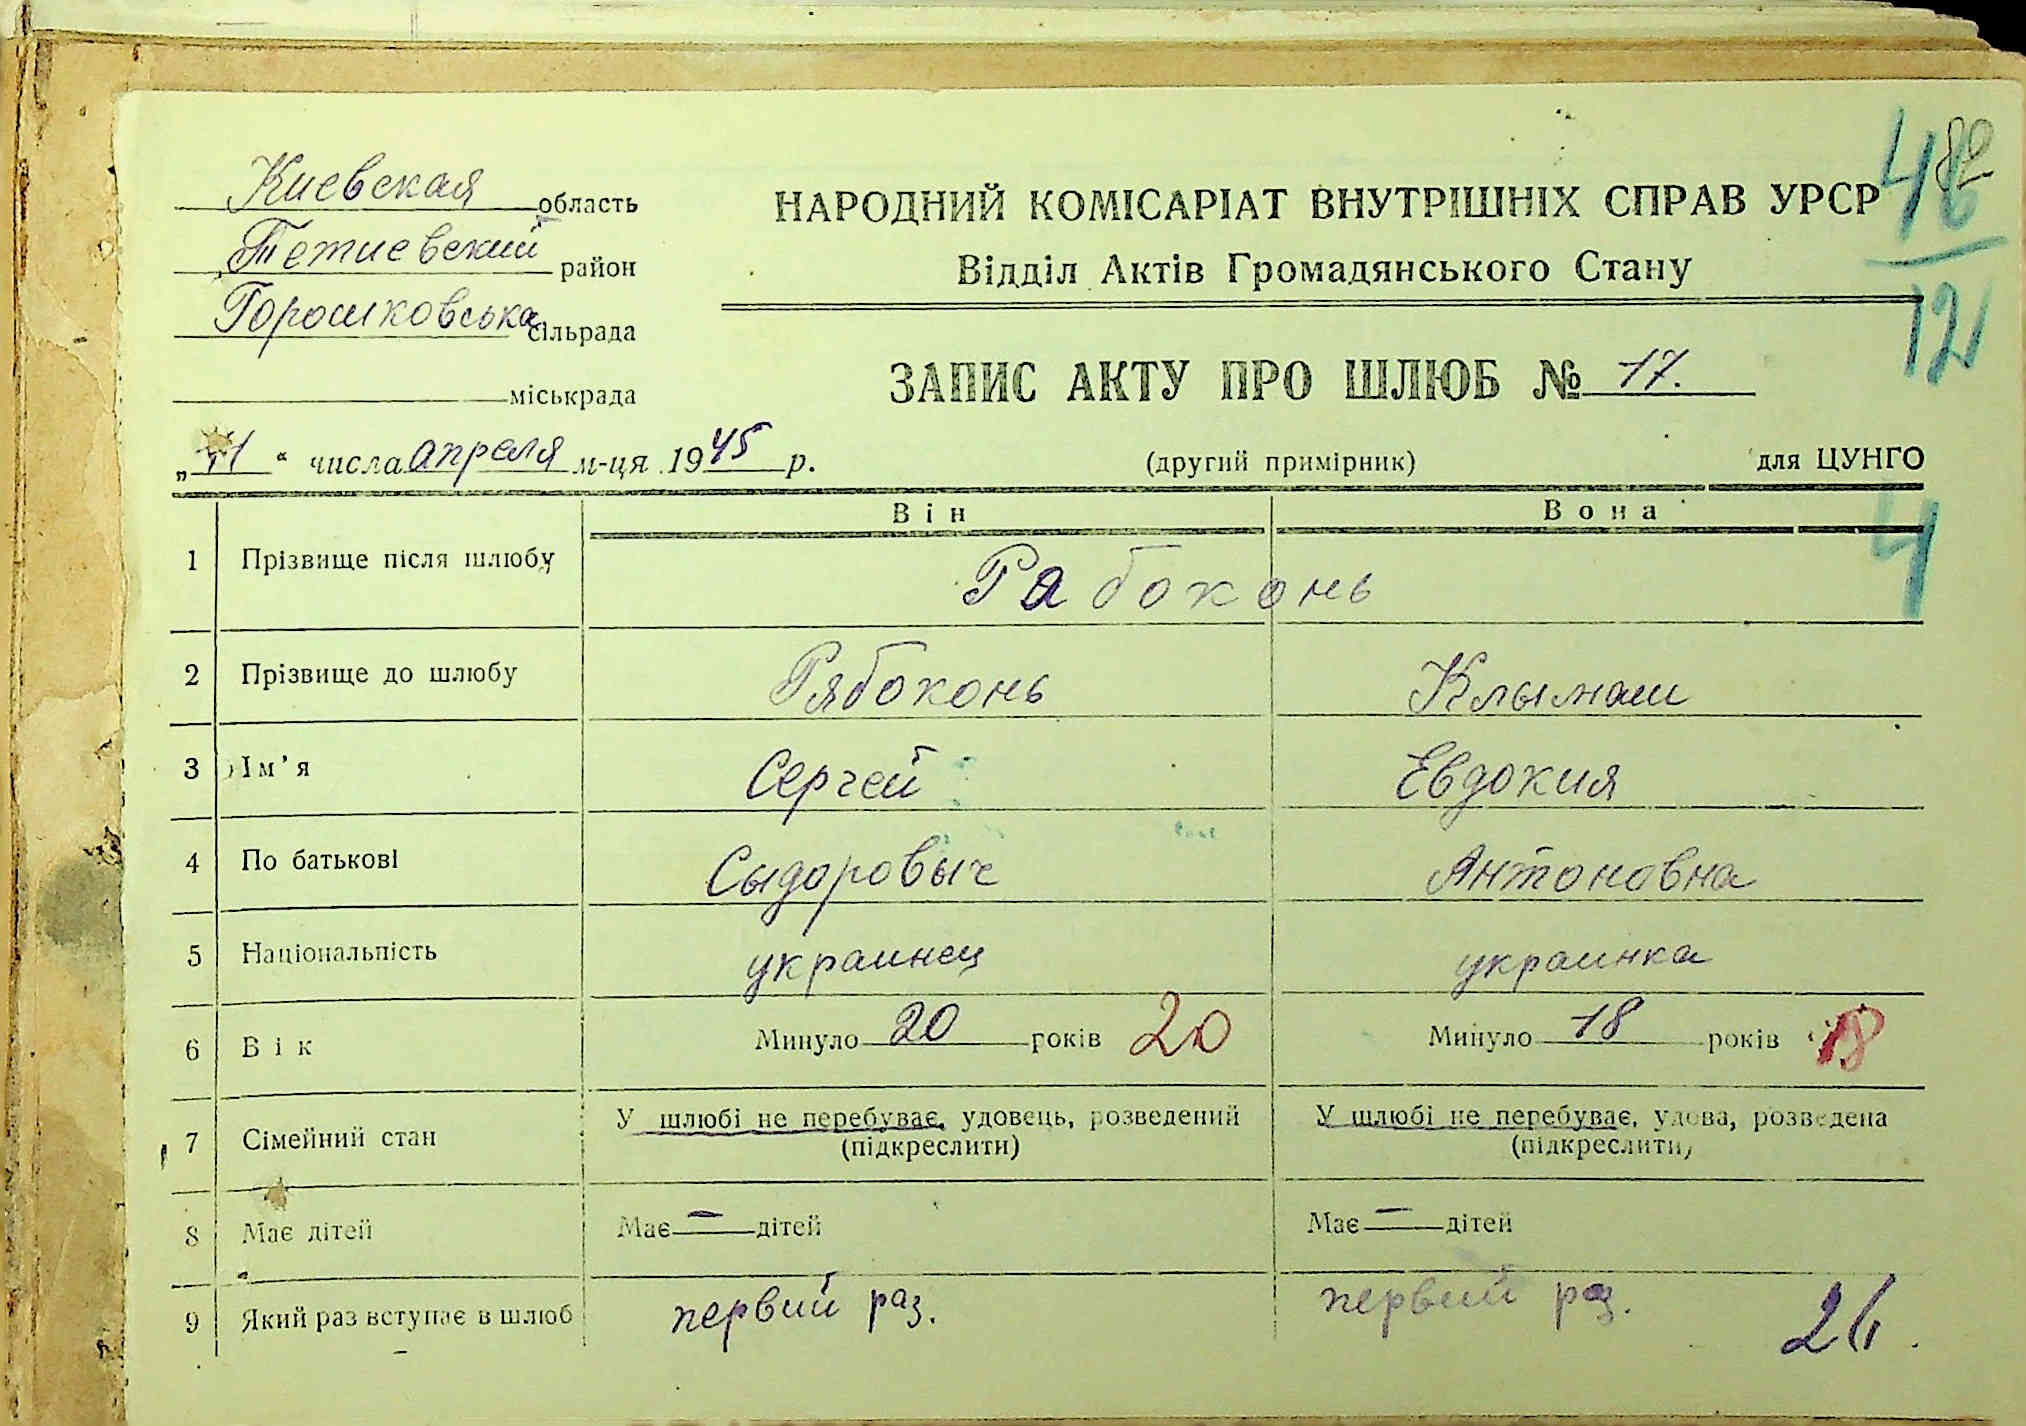 Киевская область
Тетиевский район
Горошковська сільрада
міськрада
НАРОДНИЙ КОМІСАРІАТ ВНУТРІШНІХ СПРАВ УРСР
Відділ Актів Громадянського Стану
46
12
ЗАПИС АКТУ ПРО ШЛЮБ № 17.
„11“ числа апреля м-ця 1945 р.
(другий примірник)
для ЦУНГО
Він Вона
4
1 Прізвище після шлюбу Рабоконь
2 Прізвище до шлюбу Рябоконь Клымаш
3 Ім’я Сергей Евдокия
4 По батькові Сыдоровыч Антоновна
5 Національність украинец украинка
6 Вік Минуло 20 років 20 Минуло 18 років 18
7 Сімейний стан У шлюбі не перебуває, удовець, розведений У шлюбі не перебуває, удова, розведена
(підкреслити) (підкреслити)
8 Має дітей Має — дітей Має — дітей
9 Який раз вступає в шлюб первий раз. первий раз.